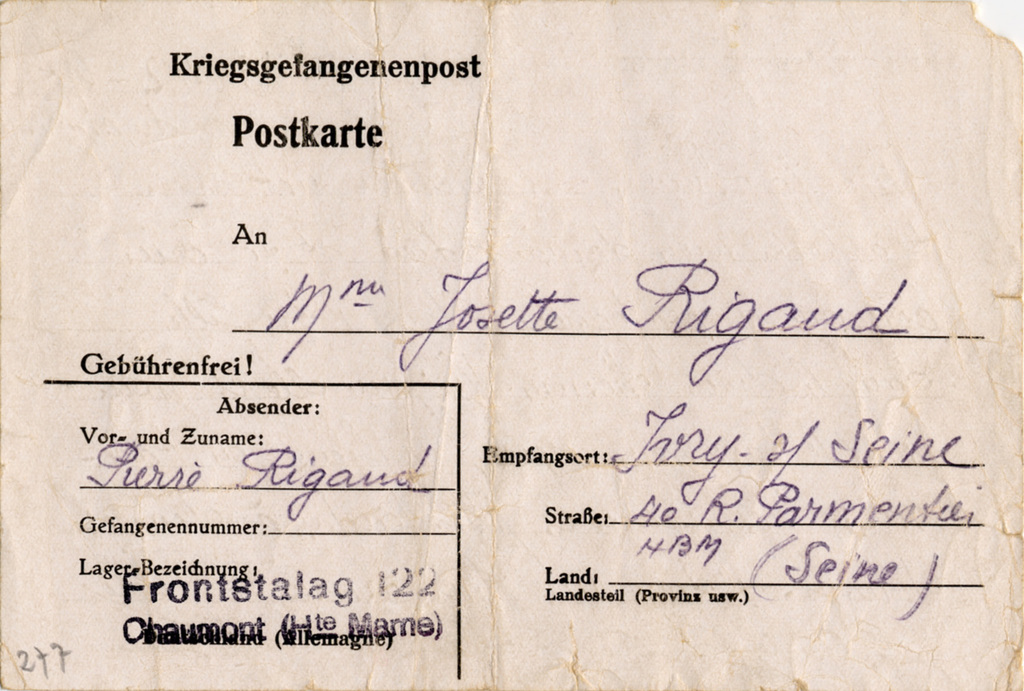 Kriegsgefangenenpost
Postkarte
An
Mme Josette Rigaud
Gebührenfrei!
Absender:
Vor- und Zuname:
Pierre Rigaud
Gefangenennummer:
Lager-Bezeichnung:
Frontstalag 122
Chaumont (Hte Marne)
Deutschland (Allemagne)
Empfangsort: Ivry-s/ Seine
Straße: 40 R. Parmentier
HBM
Land: (Seine)
Landesteil (Provinz usw.)
277